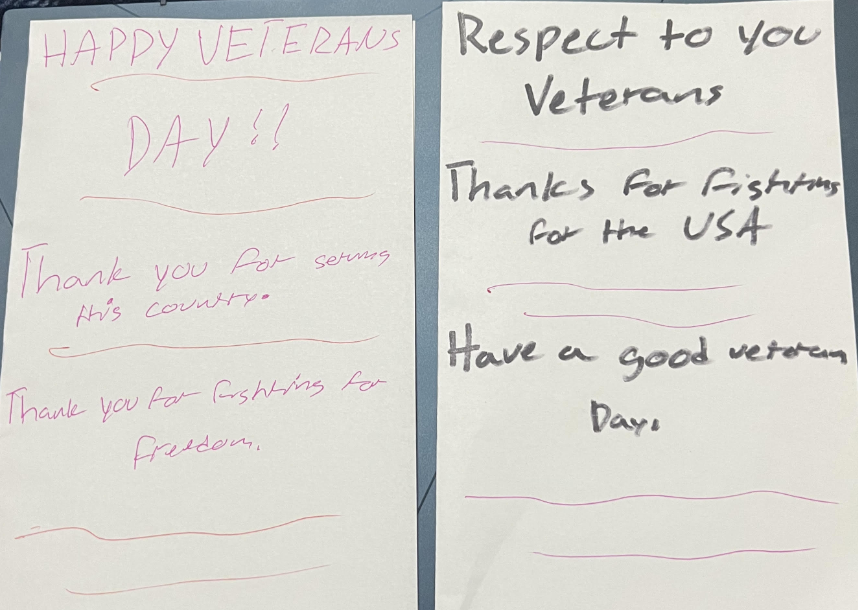 HAPPY VETERANS
DAY!!
Thank you for serving
this country.
Thank you for fighting for
freedom.
Respect to you
Veterans
Thanks for fighting
for the USA
Have a good veteran
Day.